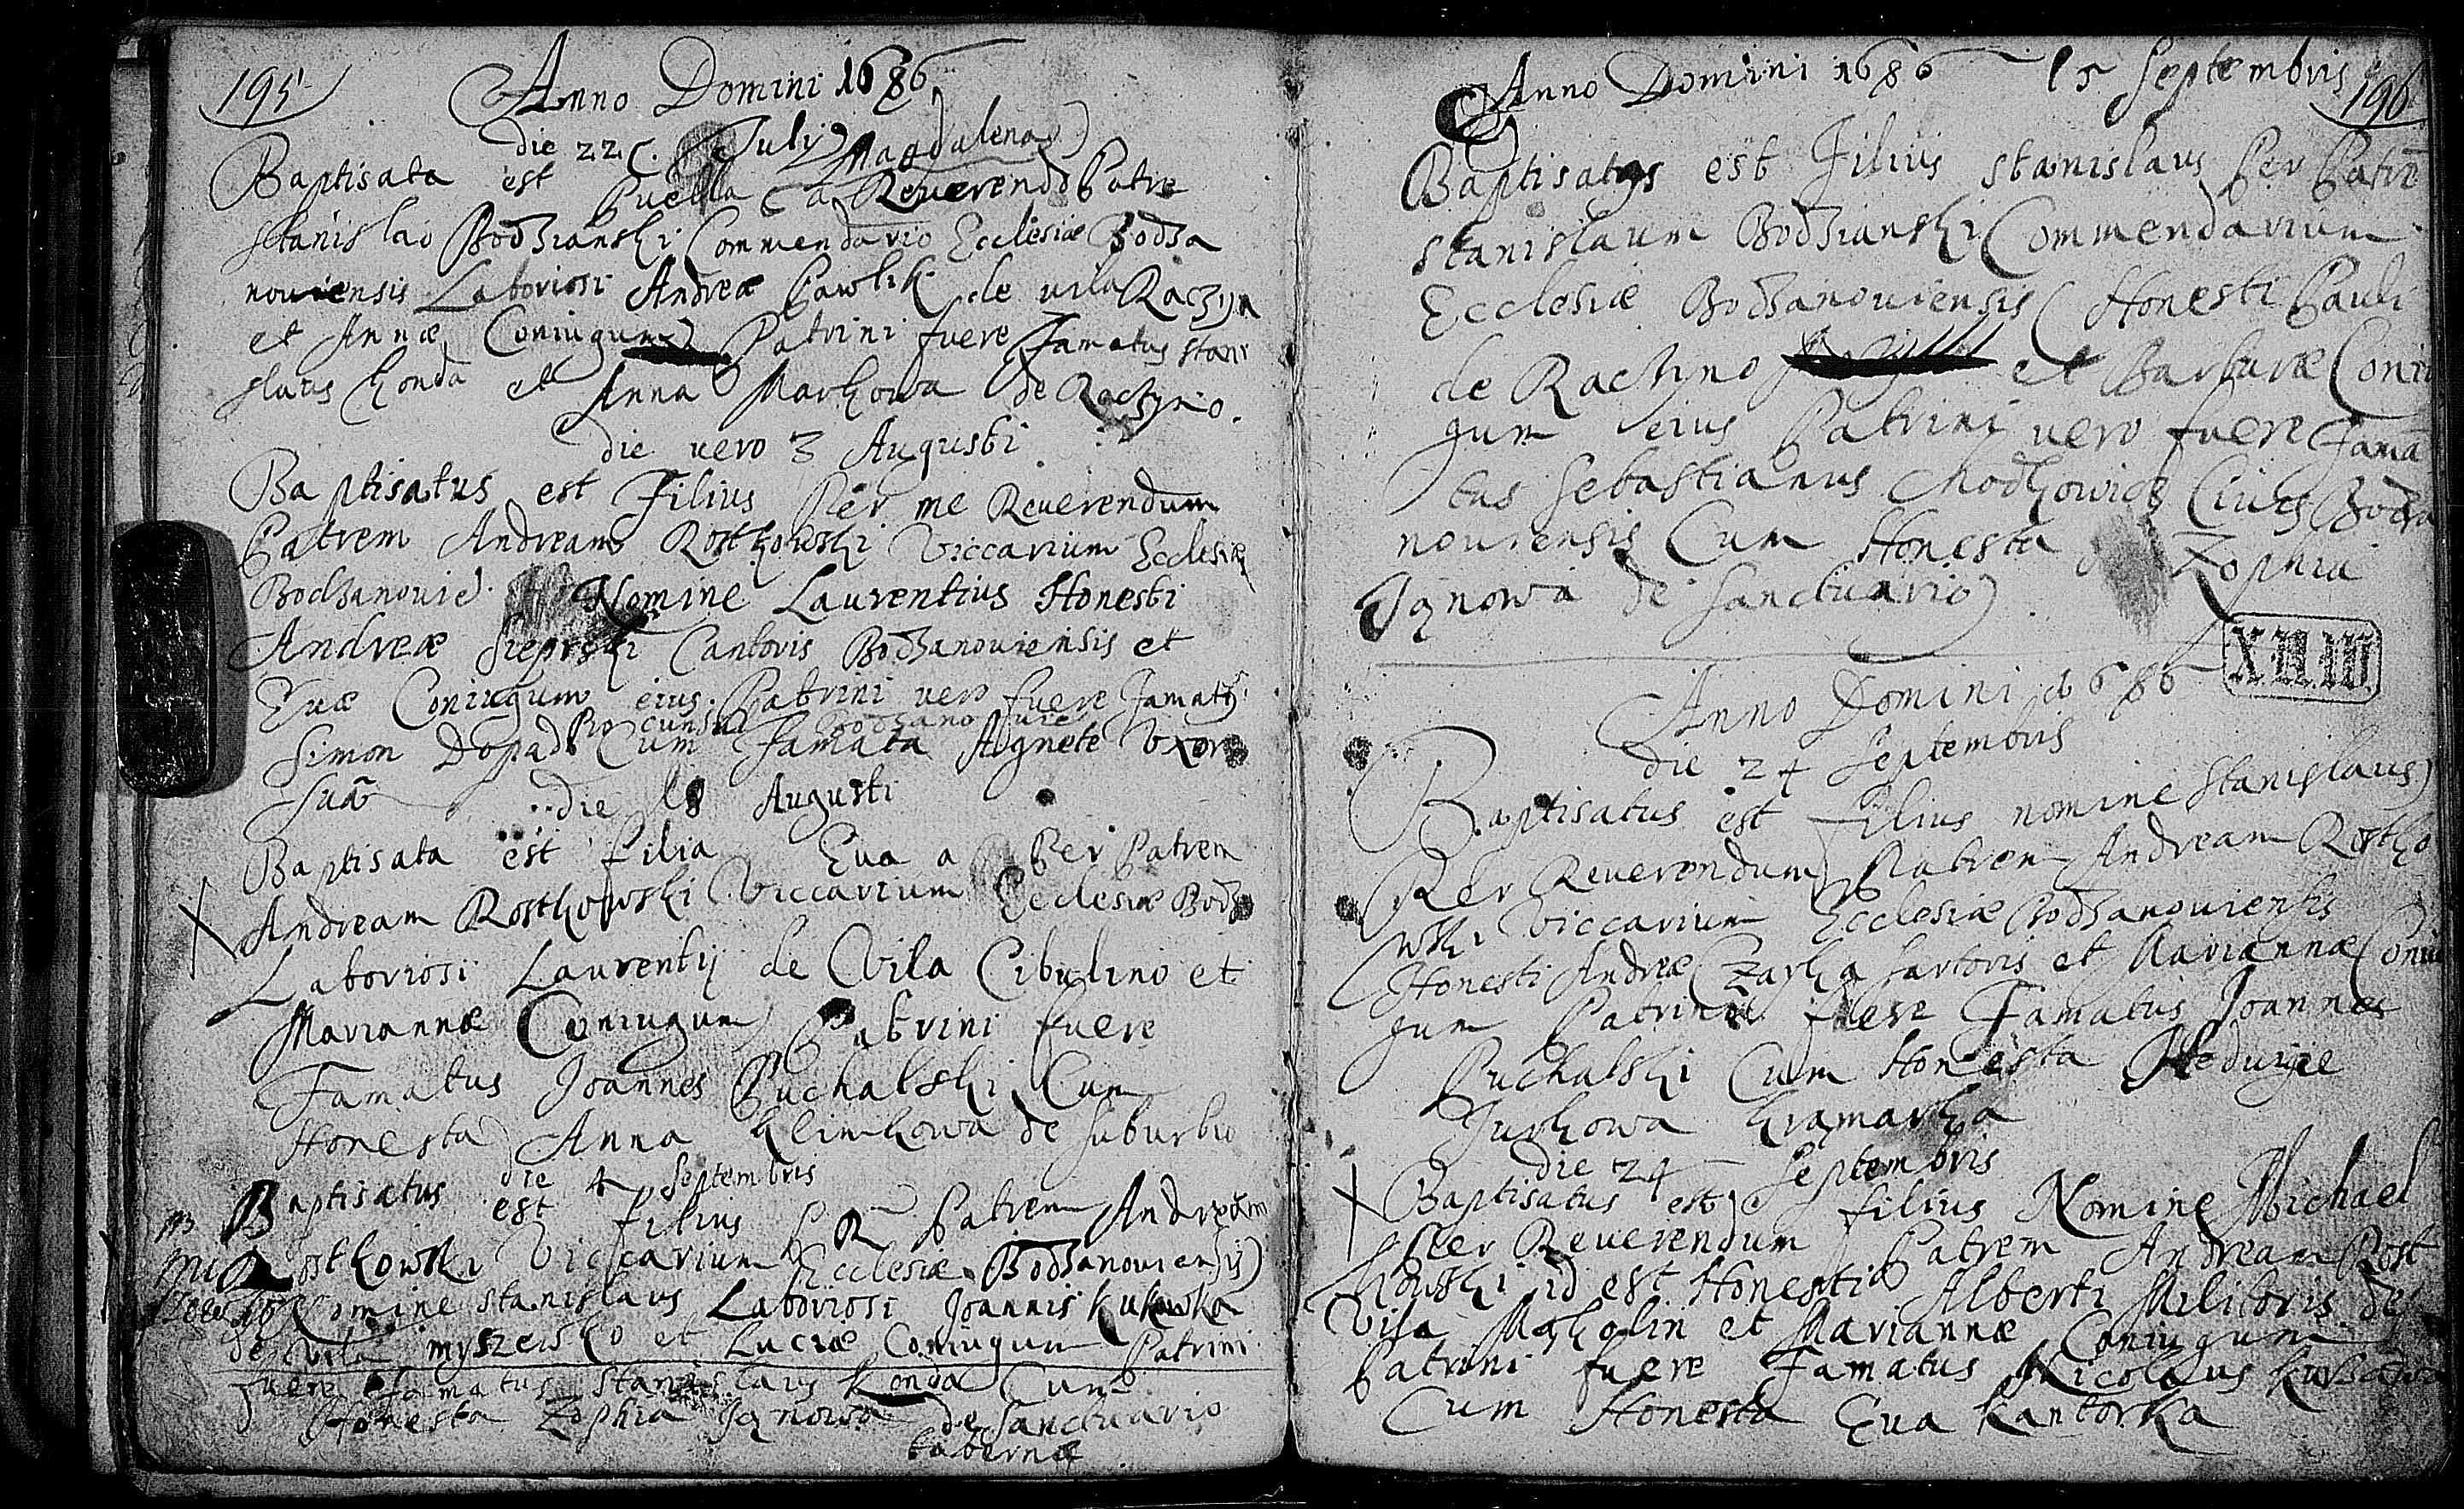 195
Anno Domini 1686
die 22 Julij Magdalena
Baptisata est Puella a Reverendo Patre
Stanislao Bodzianski Commendario Ecclesiæ Bodza
noviensis Laboriosi Andreæ Pawlik de vila Raczyn
et Annæ Coniugum Patrini fuere Famatus Stani
slaus Konda et Anna Markowa de Raczyno.
die vero 3 Augusti
Baptisatus est Filius Per me Reverendum
Patrem Andream Rostkowski Viccarium Ecclesiæ
Bodzanovie. Nomine Laurentius Honesti
Andreæ Sieprski Cantoris Bodzanoviensis et
Evæ Coniugum eius. Patrini vero fuere Famatus
Simon Dopad Cum Famata Agnete Uxore
sua die 18 Augusti
Baptisata est filia Eva a Per Patrem
Andream Rostkowski Viccarium Ecclesiæ Bodz
Laboriosi Laurentij de Vila Cibulino et
Mariannæ Coniugum Patrini fuere
Famatus Joannes Puchalski Cum
Honesta Anna Klimkowa de suburbio
die 4 Septembris
Baptisatus est filius P R Patrem Andream
Rostkowski Viccarium Ecclesiæ Bodzanoviensis
Nomine Stanislaus Laboriosi Joannis Kukawka
de vila myszewko et Luciæ Coniugum Patrini
fuere Famatus Stanislaus Konda Cum
Honesta Zophia Jgnowa de Sanctuario
tabernæ
Anno Domini 1686 15 Septembris
196
Baptisatus est Filius Stanislaus Per Patre
Stanislaum Bodzianski Commendarium
Ecclesiæ Bodzanoviensis Honesti Pauli
de Raczyno et Barbaræ Coniu
gum eius Patrini vero fuere Fama
tus Sebastianus Modkowicz Civis Bodza
noviensis Cum Honesta Zophia
Jgnowa de Sanctuario
Anno Domini 1686
die 24 Septembris
Baptisatus est filius nomine Stanislaus
Per Reverendum Patrem Andream Rostko
wski Viccarium Ecclesiæ Bodzanoviensis
Honesti Andreæ sartoris et Mariannæ Coniu
gum Patrini fuere Famatus Joannes
Puchalski Cum Honesta Heduige
Jurkowa kramarka
die 24 Septembris
Baptisatus est filius Nomine Michael
Per Reverendum Patrem Andream Rost
kowski id est Honesti Alberti Militoris de
Vila Mąkolin et Mariannæ Coniugum
Patrini fuere Famatus Nicolaus
Cum Honesta Eva Kantorka